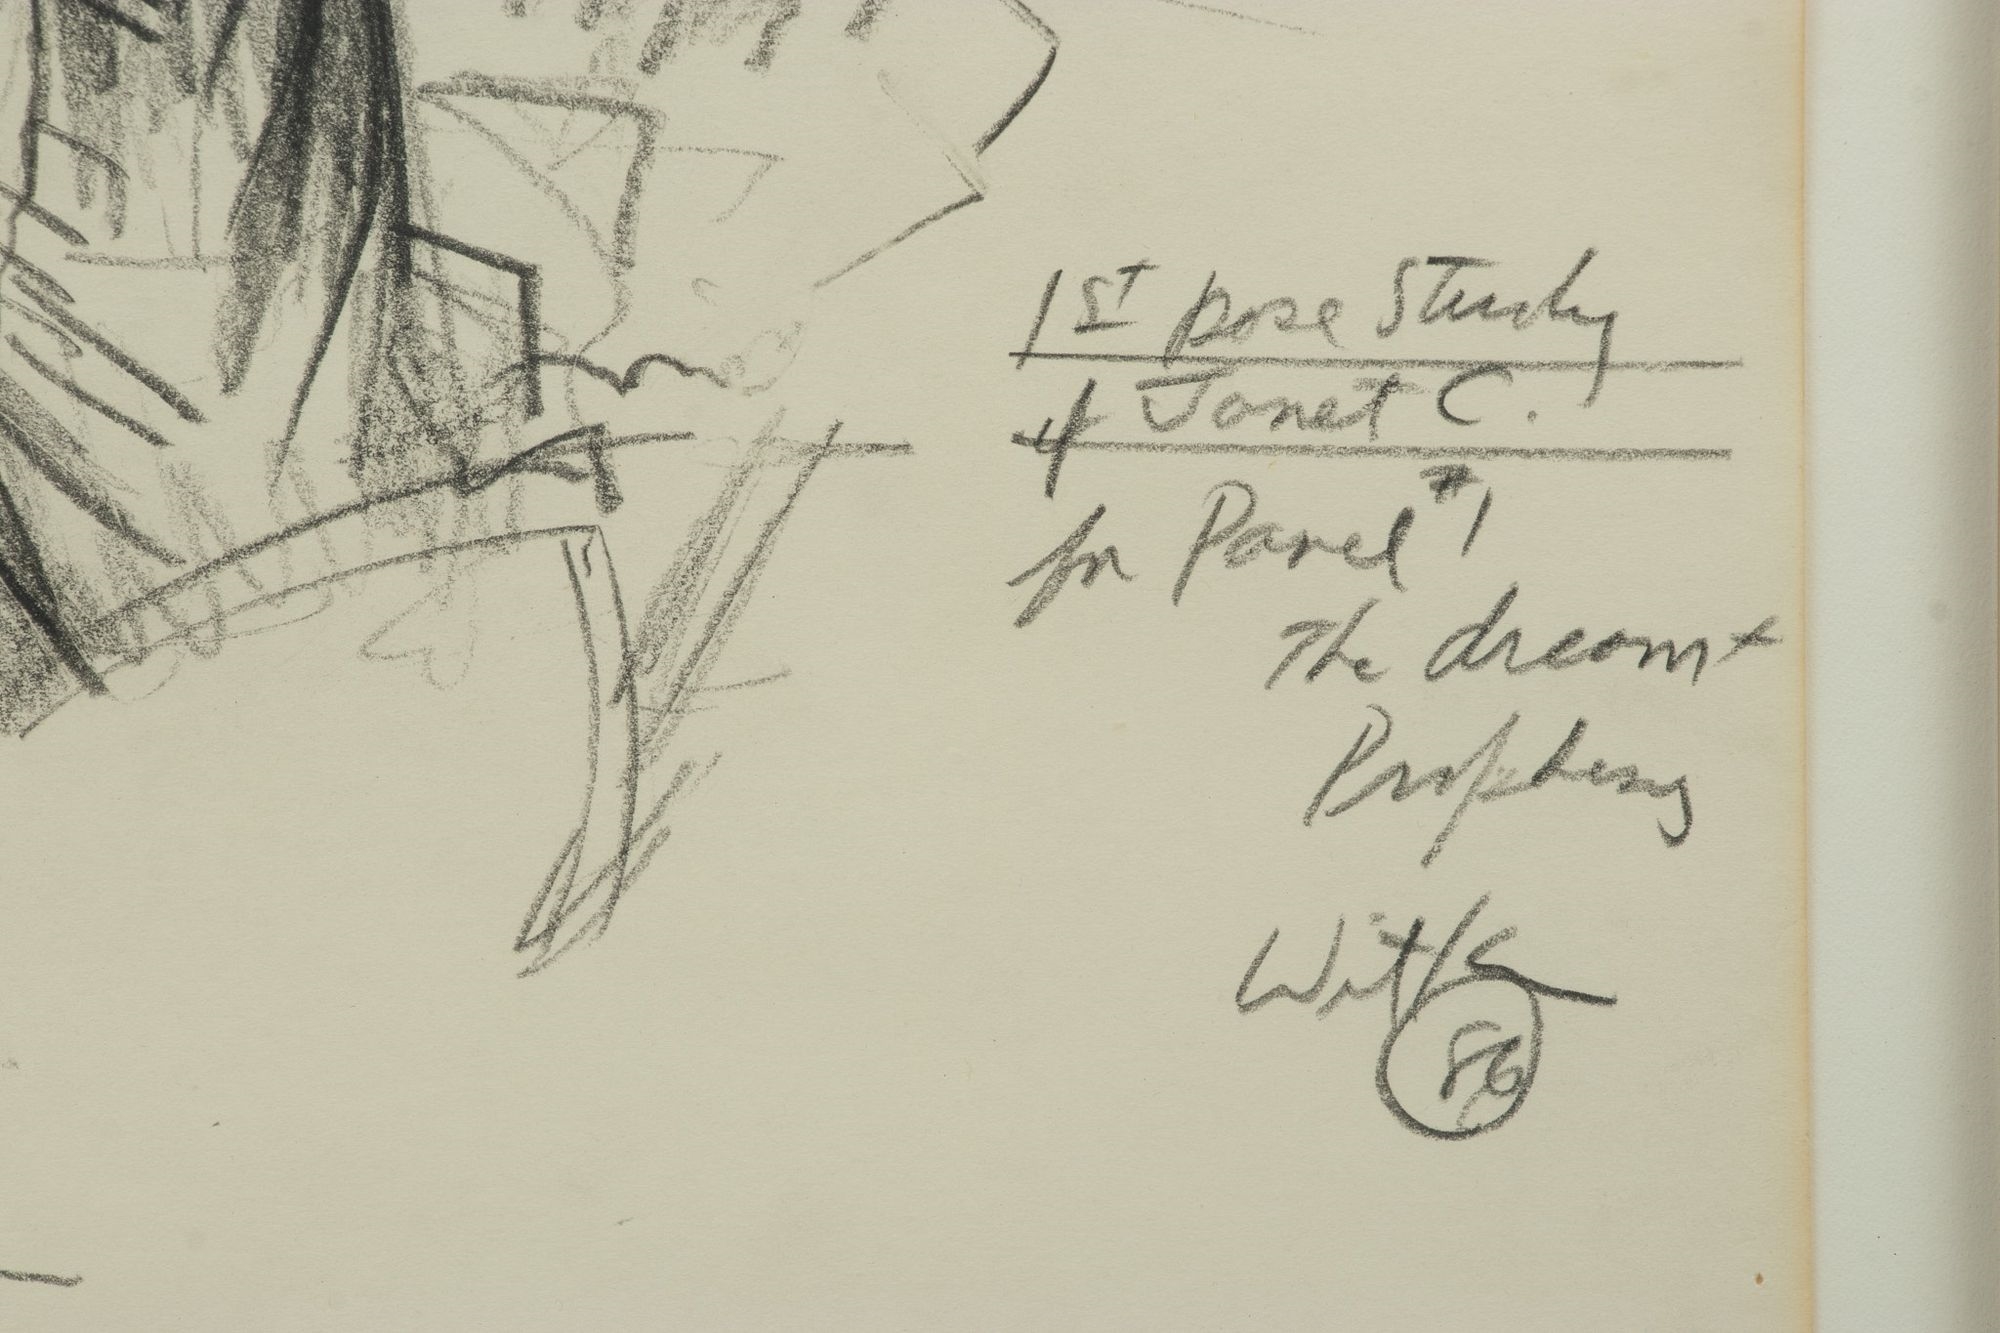 1st pose Study
of Janet C.
for Panel #1
The dream +
Prophesy
Witk
86